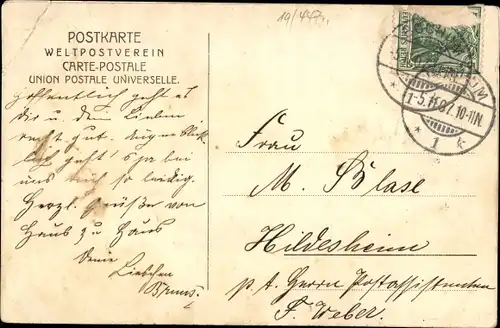 19/44
POSTKARTE
WELTPOSTVEREIN
CARTE-POSTALE
UNION POSTALE UNIVERSELLE.
Hoffentlich geht es
dir u. dem Lieben
recht gut. Augenblick-
lich geht's ja bei
uns mir so leidig.
Herzl. Grüße von
Haus zu Haus
Deine
Liebchen
Bruns.
-5.11.07. 10-11N.
* 1 k
Frau
M. Blase
Hildesheim
p. A. Herrn Postassistenten
F. Weber.